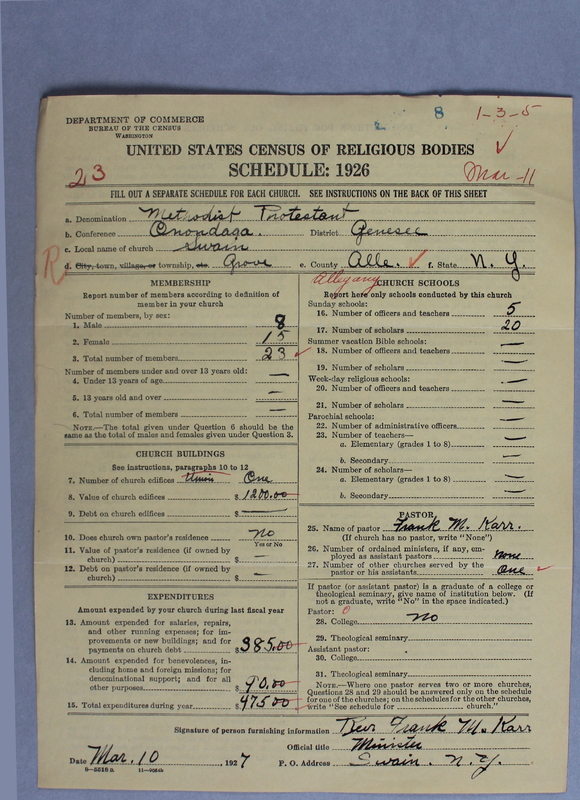 8 1-3-5
2
DEPARTMENT OF COMMERCE
BUREAU OF THE CENSUS
WASHINGTON
UNITED STATES CENSUS OF RELIGIOUS BODIES
23 SCHEDULE: 1926 Mar-11
FILL OUT A SEPARATE SCHEDULE FOR EACH CHURCH. SEE INSTRUCTIONS ON THE BACK OF THIS SHEET
a. Denomination Methodist Protestant
b. Conference Onondaga. District Genesee
c. Local name of church Swain
R d. City, town, village, or township, etc. Grove e. County Alle. f. State N. Y.
Allegany
MEMBERSHIP
Report number of members according to definition of
member in your church
Number of members, by sex:
1. Male 8
2. Female 15
3. Total number of members 23
Number of members under and over 13 years old:
4. Under 13 years of age —
5. 13 years old and over —
6. Total number of members —
NOTE.—The total given under Question 6 should be
same as the total of males and females given under Question 3.
CHURCH BUILDINGS
See instructions, paragraphs 10 to 12
7. Number of church edifices Union One
8. Value of church edifices $1200.00
9. Debt on church edifices $ —
10. Does church own pastor's residence No
Yes or No
11. Value of pastor's residence (if owned by
church) $ —
12. Debt on pastor's residence (if owned by
church) $ —
EXPENDITURES
Amount expended by your church during last fiscal year
13. Amount expended for salaries, repairs,
and other running expenses; for im-
provements or new buildings; and for
payments on church debt $385.00
14. Amount expended for benevolences, in-
cluding home and foreign missions; for
denominational support; and for all
other purposes $90.00
15. Total expenditures during year $475.00
CHURCH SCHOOLS
Report here only schools conducted by this church
Sunday schools:
16. Number of officers and teachers 5
17. Number of scholars 20
Summer vacation Bible schools:
18. Number of officers and teachers —
19. Number of scholars —
Week-day religious schools:
20. Number of officers and teachers —
21. Number of scholars —
Parochial schools:
22. Number of administrative officers —
23. Number of teachers—
a. Elementary (grades 1 to 8) —
b. Secondary —
24. Number of scholars—
a. Elementary (grades 1 to 8) —
b. Secondary —
PASTOR
25. Name of pastor Frank M. Karr.
(If church has no pastor, write "None")
26. Number of ordained ministers, if any, em-
ployed as assistant pastors None
27. Number of other churches served by the
pastor or his assistants One
If pastor (or assistant pastor) is a graduate of a college or
theological seminary, give name of institution below. (If
not a graduate, write "No" in the space indicated.)
Pastor: 0
28. College No
29. Theological seminary
Assistant pastor:
30. College
31. Theological seminary
NOTE.—Where one pastor serves two or more churches,
Questions 28 and 29 should be answered only on the schedule
for one of the churches; on the schedules for the other churches,
write "See schedule for
Signature of person furnishing information Rev Frank M. Karr
Official title Minister
Date Mar. 10, 1927 P. O. Address Swain. N.Y.